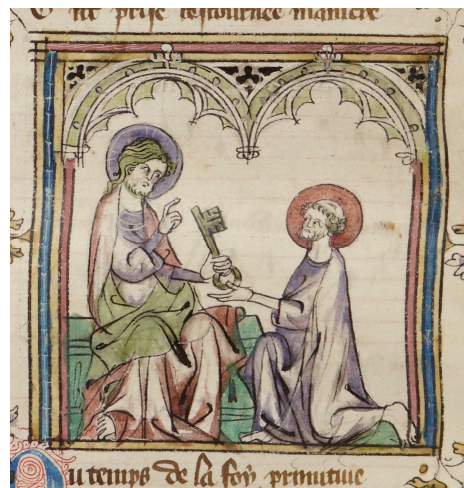 prise bestournee maniere
Du temps de la foy primitiue